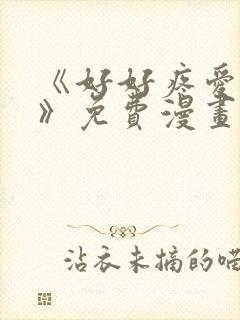 《好好疼愛
》免費漫畫
沾衣未摘的喵